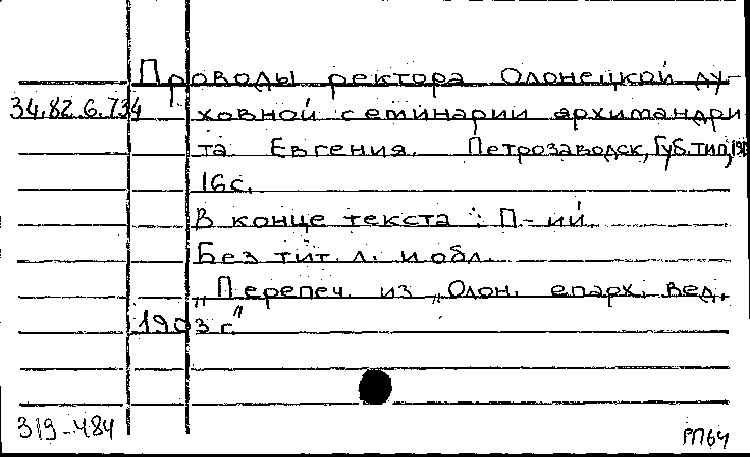 Проводы ректора Олонецкой ду-
34.82.6.734 ховной семинарии архимандри
та Евгения. Петрозаводск, Губ. тип,
16 с.
В конце текста : П-ий.
Без тит. л. и обл.
„Перепеч. из „Олон. епарх. вед.
1903 г."
319-484
РП64